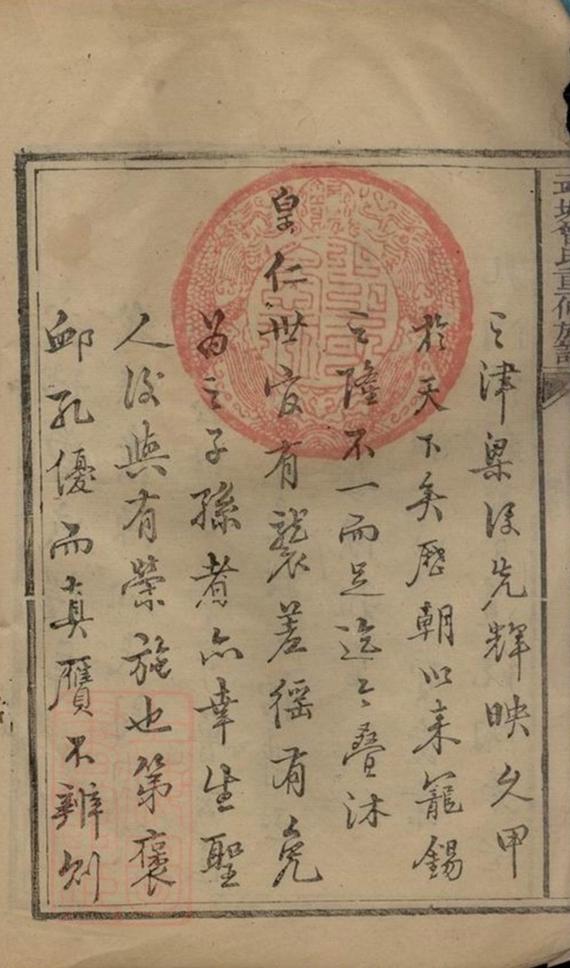 武城曾氏重修族譜
之津梁後先輝映久甲
於天下矣歷朝以來寵錫
之隆不一而足迄今疊沐
皇仁世官有襲差徭有免
為之子孫者亦幸生聖
人後與有榮施也第褒
卹孔優而真贋不辨則